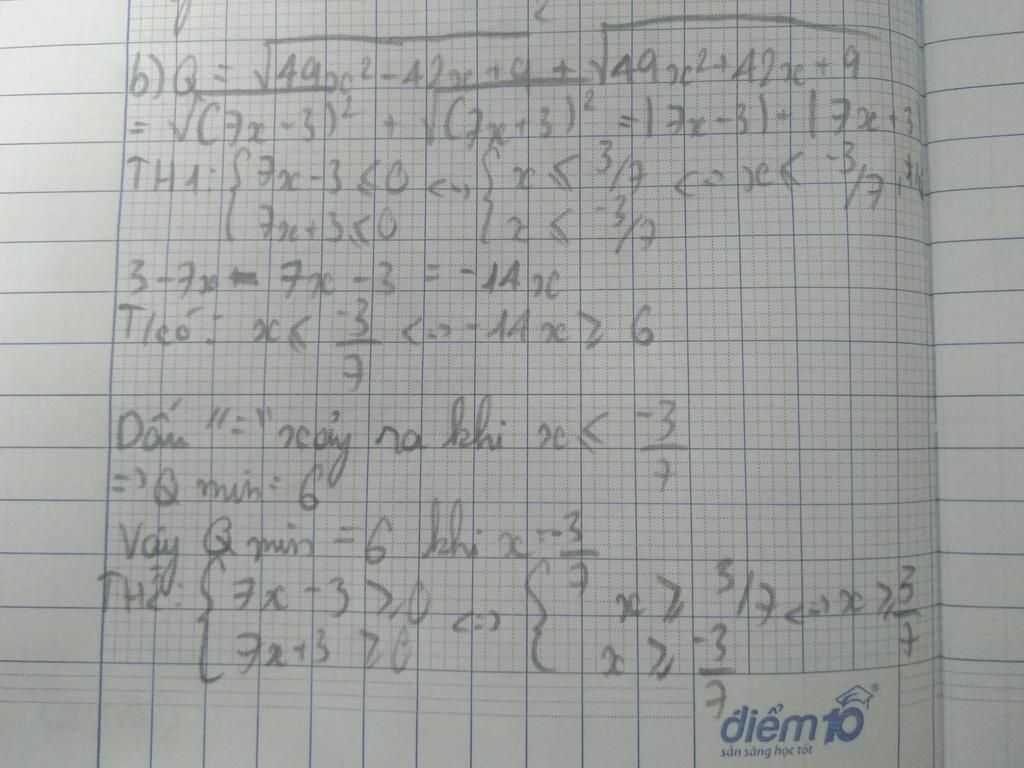 b) Q = √49x² - 42x + 9 + √49x² + 42x + 9
= √(7x - 3)² + √(7x + 3)² = |7x - 3| + |7x + 3
TH1: { 7x - 3 ≤ 0 <=> { x ≤ 3/7 <=> x ≤ -3/7
7x + 3 ≤ 0 { x ≤ -3/7
3 - 7x - 7x - 3 = -14x
x ≤ -3/7 <=> -14x ≥ 6
Dấu "=" xảy ra khi x < -3/7
=> Q min = 6
Vậy Q min = 6 khi x = -3/7
TH2: { 7x - 3 ≥ 0 <=> { x ≥ 3/7 <=> x ≥ 3/7
7x + 3 ≥ 0 x ≥ -3/7
điểm10
sẵn sàng học tốt